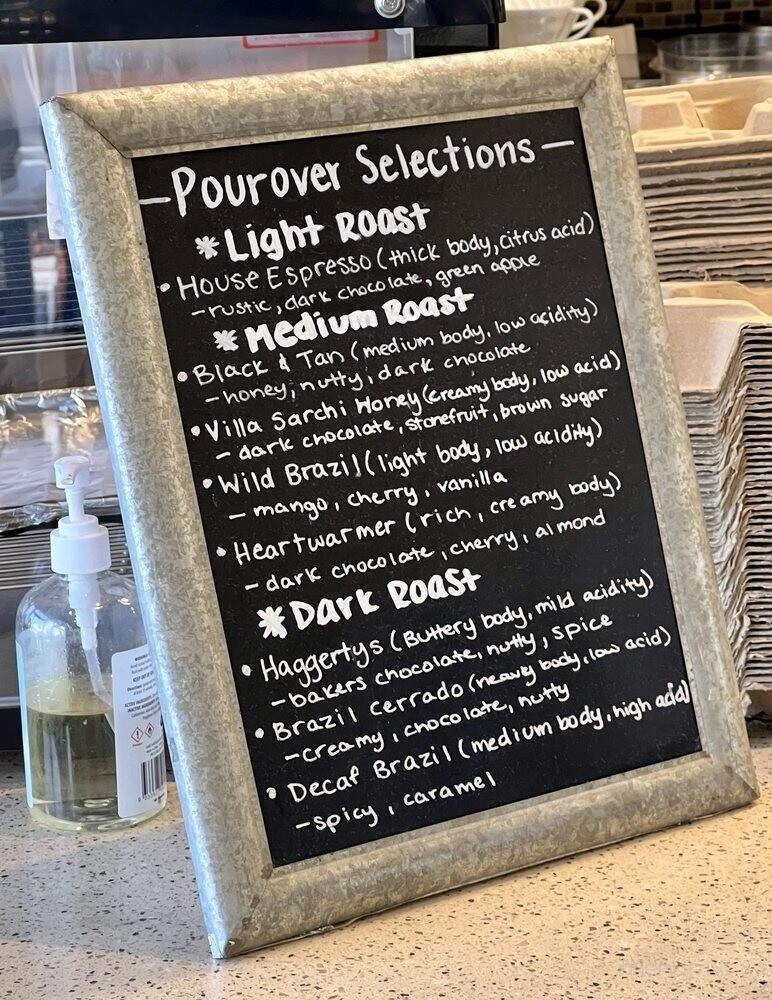 — Pourover Selections —
* Light Roast
• House Espresso (thick body, citrus acid)
- rustic, dark chocolate, green apple
* Medium Roast
• Black & Tan (medium body, low acidity)
- honey, nutty, dark chocolate
• Villa Sarchi Honey (creamy body, low acid)
- dark chocolate, stonefruit, brown sugar
• Wild Brazil (light body, low acidity)
- mango, cherry, vanilla
• Heartwarmer (rich, creamy body)
- dark chocolate, cherry, almond
* Dark Roast
• Haggertys (Buttery body, mild acidity)
- bakers chocolate, nutty, spice
• Brazil cerrado (heavy body, low acid)
- creamy, chocolate, nutty
• Decaf Brazil (medium body, high acid)
- spicy, caramel